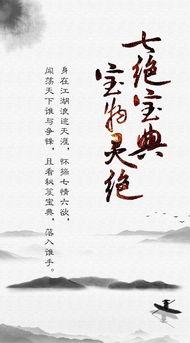 七绝宝典
宝物灵绝
身在江湖浪迹天涯，怀揣七情六欲，
闯荡天下谁与争锋，且看秘笈宝典，落入谁手。